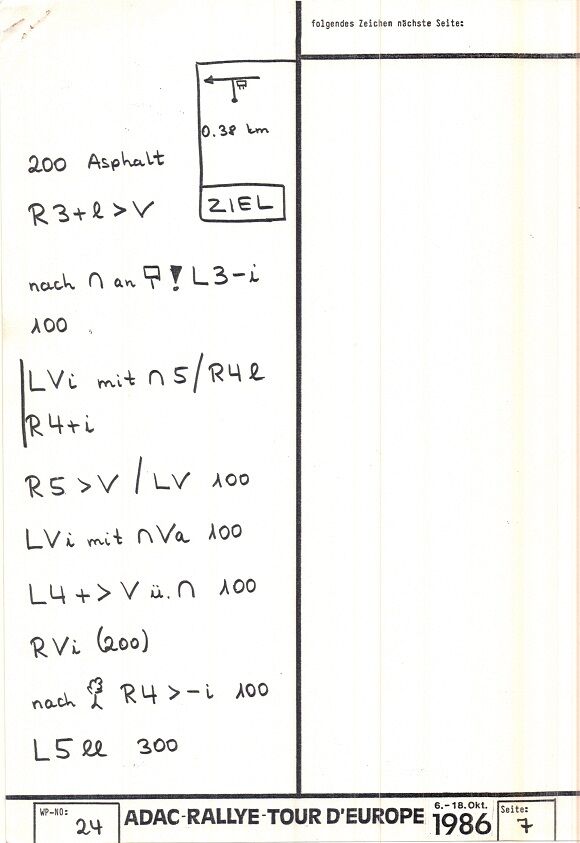 folgendes Zeichen nächste Seite:
0.38 km
ZIEL
200 Asphalt
R3+l>V
nach ∩ an ! L3-i
100
LVi mit ∩5/R4l
R4+i
R5>V/LV 100
LVi mit ∩Va 100
L4+>V ü.∩ 100
RVi (200)
nach R4>-i 100
L5ll 300
WP-NO: 24
ADAC-RALLYE-TOUR D'EUROPE
6.-18.Okt.
1986
Seite: 7